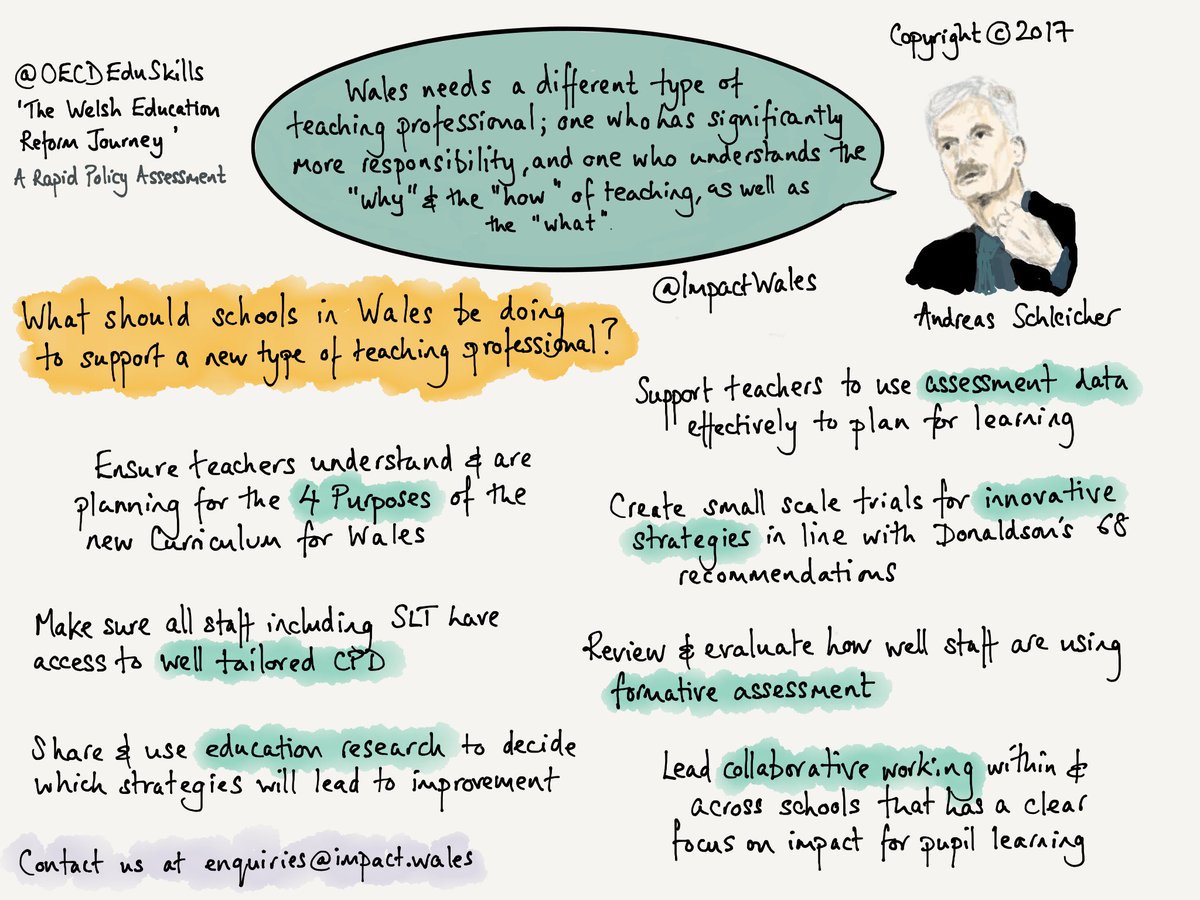 @OECDEduSkills
'The Welsh Education
Reform Journey'
A Rapid Policy Assessment
Wales needs a different type of
teaching professional; one who has significantly
more responsibility, and one who understands the
"why" & the "how" of teaching, as well as
the "what".
Copyright © 2017
Andreas Schleicher
@ImpactWales
What should schools in Wales be doing
to support a new type of teaching professional?
Ensure teachers understand & are
planning for the 4 Purposes of the
new Curriculum for Wales
Make sure all staff including SLT have
access to well tailored CPD
Share & use education research to decide
which strategies will lead to improvement
Contact us at enquiries@impact.wales
Support teachers to use assessment data
effectively to plan for learning
Create small scale trials for innovative
strategies in line with Donaldson's 68
recommendations
Review & evaluate how well staff are using
formative assessment
Lead collaborative working within &
across schools that has a clear
focus on impact for pupil learning